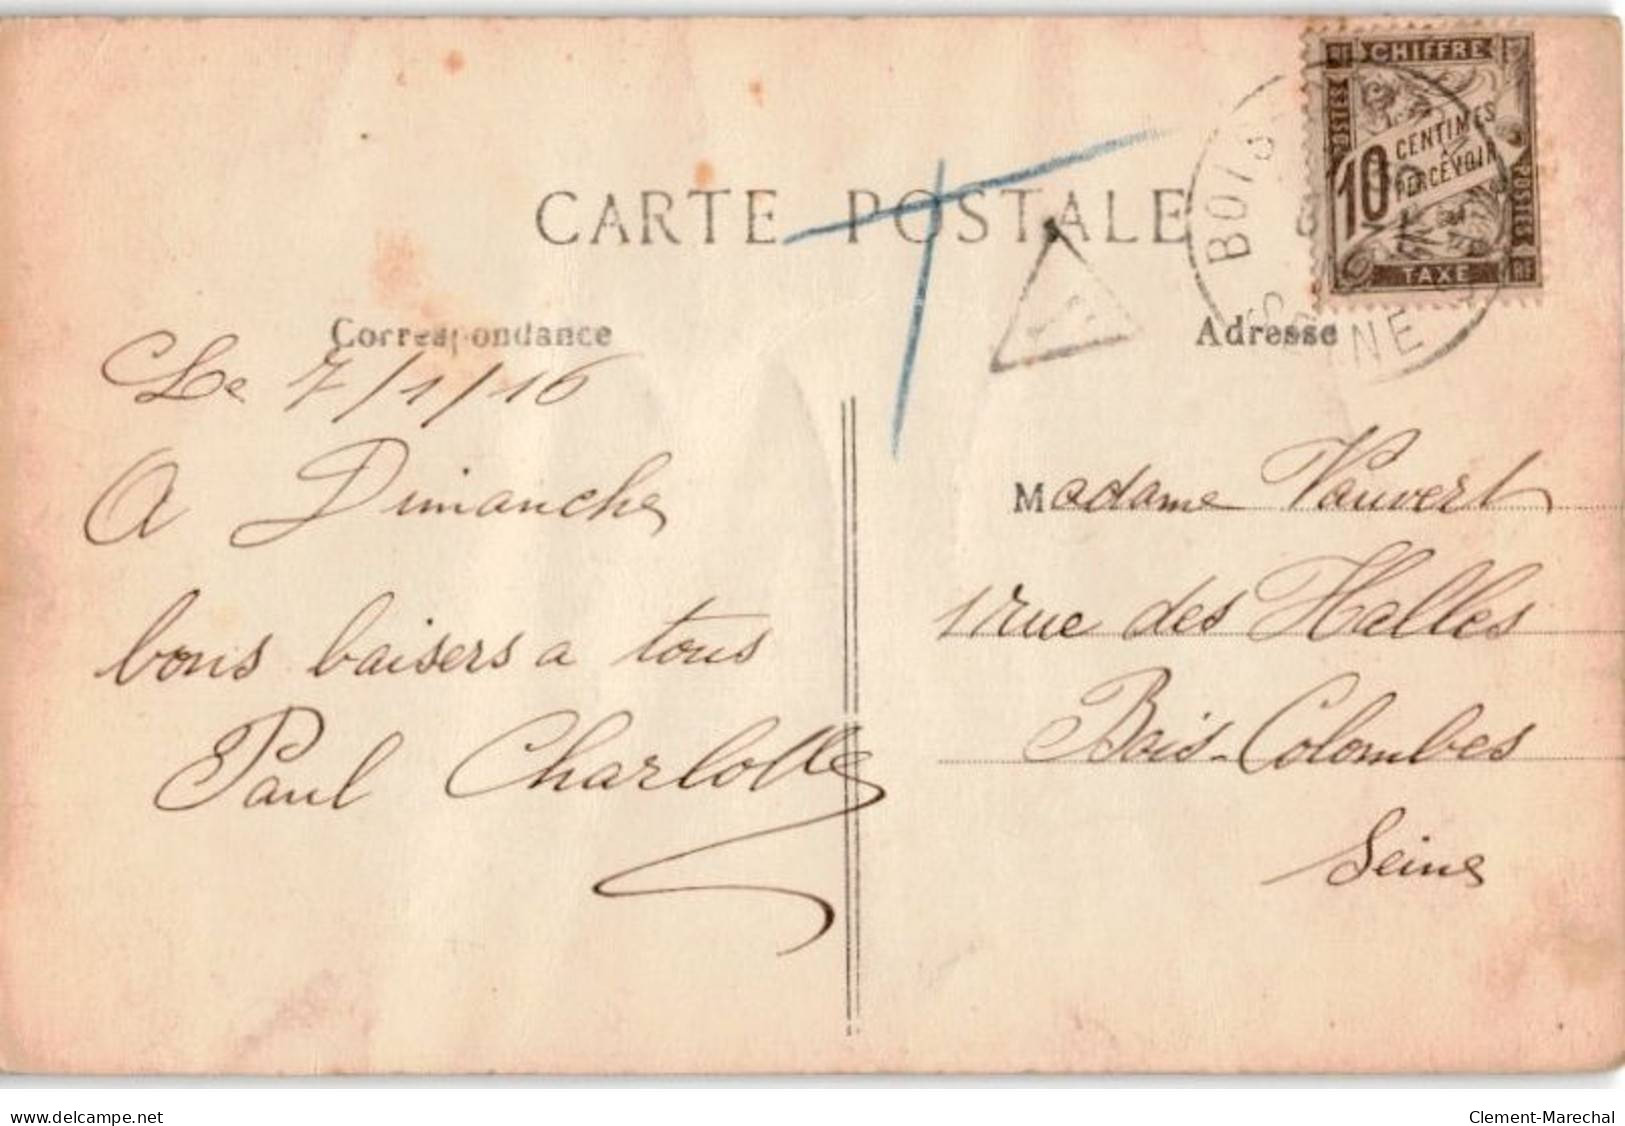 CARTE POSTALE
RF CHIFFRE
POSTES
10 CENTIMES
A PERCEVOIR
POSTES
TAXE RF
BOIS
SEINE
Correspondance
Adresse
Le 7/1/16
A Dimanche
bons baisers a tous
Paul Charlotte
Madame Vauvert
1 rue des Halles
Bois-Colombes
Seine
www.delcampe.net
Clement-Marechal